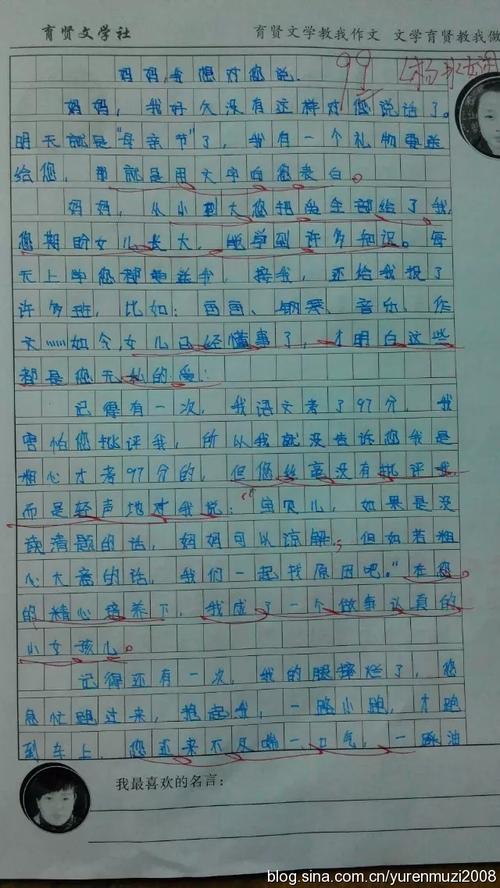 育贤文学社 育贤文学教我作文 文学育贤教我做
99
妈妈,我想对您说.
妈妈, 我好久没有这样对您说话了。
明天就是"母亲节"了, 我有一个礼物要送
给您, 那就是用文字向您表白。
妈妈, 从小到大您把全部给了我,
您期盼女儿长大, 能学到许多知识。每
天上学您都要送我, 接我, 还给我报了
许多班, 比如: 画画、钢琴、音乐、作
文……如今,女儿已经懂事了, 才明白这些
都是您无私的爱.
记得有一次, 我语文考了97分, 我
害怕您批评我, 所以我就没告诉您我是
粗心才考97分的, 但您丝毫没有批评我
而是轻声地对我说:"宝贝儿, 如果是没
读清题的话, 妈妈可以谅解, 但如若粗
心大意的话, 我们一起找原因吧。"在您
的精心培养下, 我成了一个做事认真的
小女孩儿。
记得还有一次, 我的腿摔烂了, 您
急忙跑过来, 抱起我, 一路小跑, 才跑
到车上, 您还来不及喘一口气, 一踩油
我最喜欢的名言:
blog.sina.com.cn/yurenmuzi2008